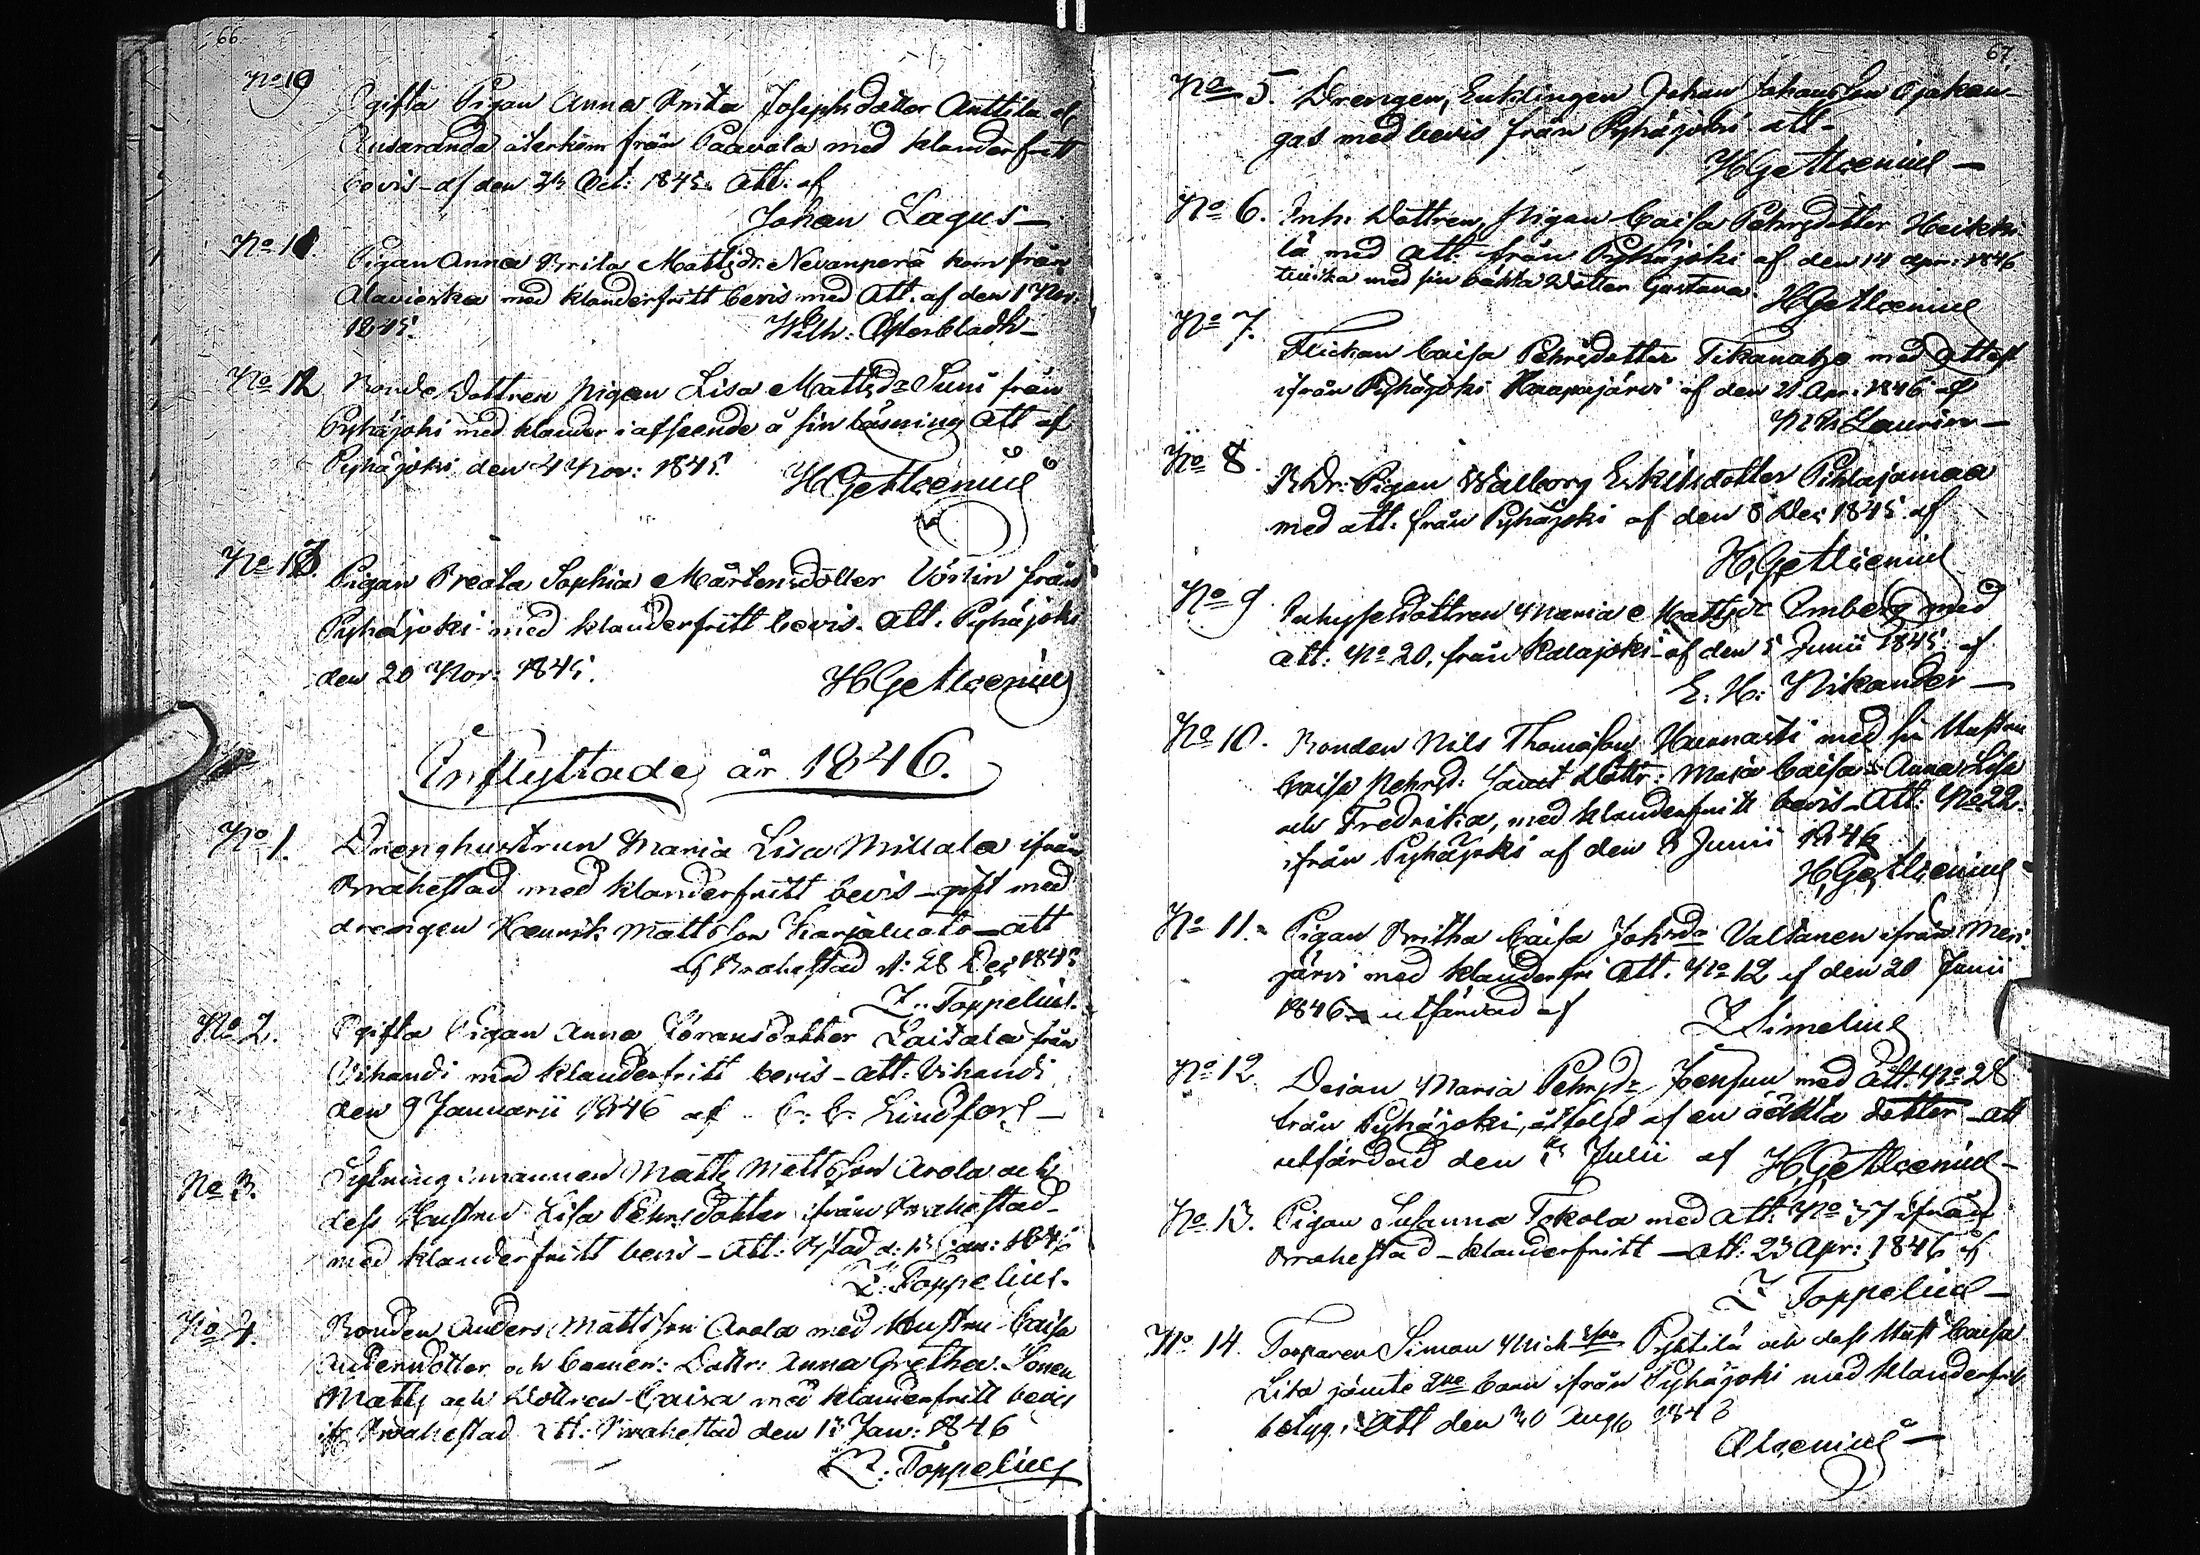 66.
No 19
Ogifta Pigan Anna Brita Josephsdotter Anttila el.
återkom från Paavola med klanderfritt
bevis af den 23 Oct: 1845. Att. af
Johan Lagus
No 11.
Pigan Anna Brita Mattsdr. Nevanperä kom från
Alavieska med klanderfritt bevis med Att. af den 1 Nov:
1845. Wilh: Österbladh
No 12
Bonde Dottren pigan Lisa Mattsdr Suni från
Pyhäjoki med klander i afseende å sin läsning Att af
Pyhäjoki den 4 Nov: 1845. HGAlcenius
No 13.
Pigan Breata Sophia Mårtensdotter från
Pyhäjoki med klanderfritt bevis. Att. Pyhäjoki
den 20 Nov: 1845. HGAlcenius
Inflyttade år 1846.
No 1.
Drenghustrun Maria Lisa ifrån
Brahestad med klanderfritt bevis gift med
drengen Henrik Mattsson Karjaluoto att
af Brahestad d: 28 Dec 1845
Z. Toppelius.
No 2.
Ogifta Pigan Anna Göransdotter Laitala från
Vihandi med klanderfritt bevis - Att: Vihandi
den 9 Januarii 1846 af Lindfors
No 3.
Sytningsmannen Matts Mattsson Arola och
dess Hustru Lisa Pehrsdotter ifrån Brahestad
med klanderfritt bevis - Att: Bstad d: 13 Jan: 1846
Z. Toppelius.
No 4.
Bonden Anders Mattsson Arola med Hustru Caisa
Andersdotter och barnen: Dottr: Anna Gretha. Sonen
Matts och Dottren Caisa med klanderfritt bevis
ifr Brahestad Att: Brahestad den 13 Jan: 1846
Z. Toppelius
67.
No 5.
Drengen, Enklingen Johan Johansson
med bevis från Pyhäjoki att
HGAlcenius
No 6.
Inh: Dottren, Pigan Caisa Pehrsdotter Heikki
lä med Att. från Pyhäjoki af den 14 apr: 1846
med sin oäkta Dotter Gustava. HGAlcenius
No 7.
Flickan Caisa Pehrsdotter med attest
ifrån Pyhäjoki Haapajärvi af den 21 Apr: 1846 af
Laurin
No 8.
BDr: Pigan Walborg Erkilsdotter Pihlajamaa
med att. från Pyhäjoki af den 8 Dec 1845 af
HGAlcenius
No 9
Inhysesdottren Maria Mattsdr Emberg med
Att: No 20. från Kalajoki af den 5 Junii 1845 af
E. H: Nikander
No 10.
Bonden Nils Thomasson med sin Hustru
Caisa Pehrsd: samt Döttr: Maja Caisa Anna Lisa
och Fredrika, med klanderfritt bevis Att: No 22.
ifrån Pyhäjoki af den 8 Junii 1846
HGAlcenius
No 11.
Pigan Britha Caisa Johsdr Valtanen ifrån Meri
järvi med klanderfri Att. No 12 af den 20 Junii
1846 utfärdad af
Z Simelius
No 12.
Dejan Maria Pehrsdr med Att. No 28
från Pyhäjoki, åtföljd af en oäkta dotter att
utfärdad den Julii af HGAlcenius
No 13.
Pigan Susanna Tokola med Att: No 37 ifrån
Brahestad - klanderfritt - att: 23 Apr: 1846 af
Z Toppelius
No 14.
Torparen Simon Michsson Pyhtilä och dess Hust Caisa
Lisa jämte 2ne barn ifrån Pyhäjoki med klanderfritt
betyg. Att den 30 Aug 1846
Alcenius